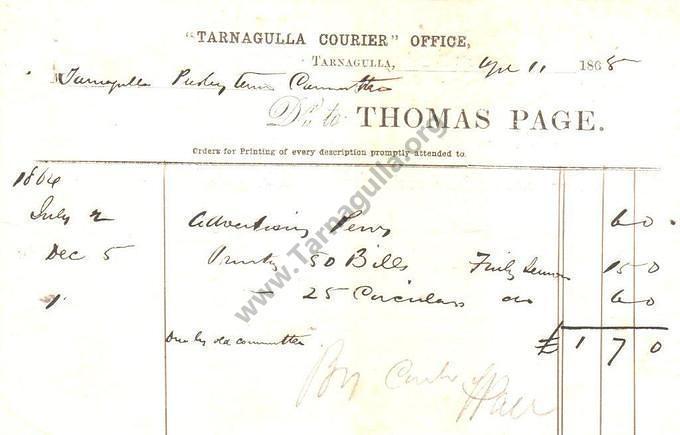 "TARNAGULLA COURIER" OFFICE,
TARNAGULLA, Apl 11 1865
Tarnagulla Presbyterian Committee
Dr. to THOMAS PAGE.
Orders for Printing of every description promptly attended to.
1864
July 2 Advertising Pews 6 0
Dec 5 Printg 50 Bills 15 0
" — 25 Circulars 6 0
Due by old committee £ 1 7 0
By Cash
www.Tarnagulla.org